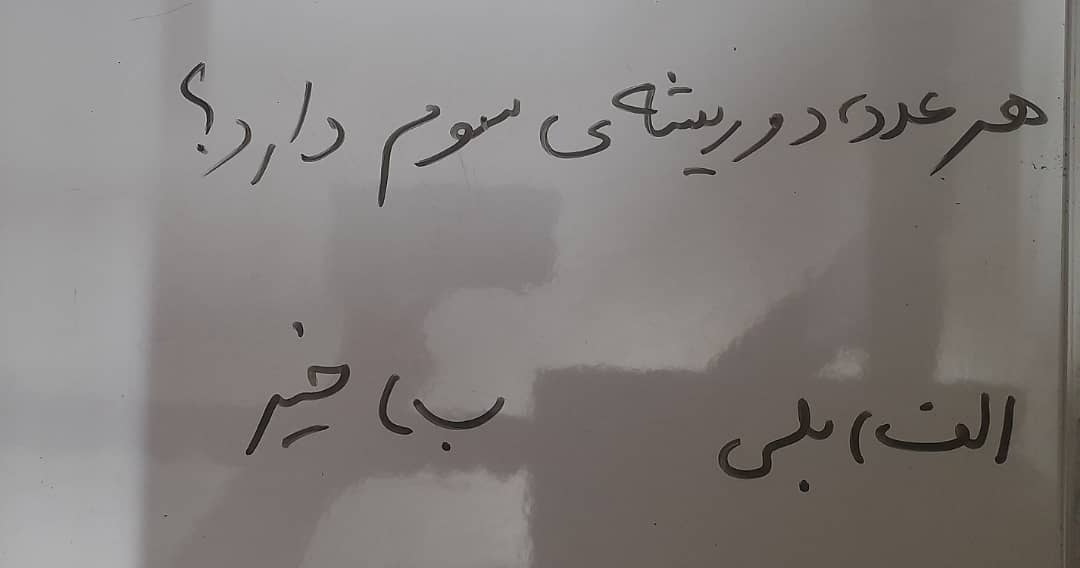 هر عدد، دو ریشه‌ی سوم دارد؟
الف) بلی ب) خیر